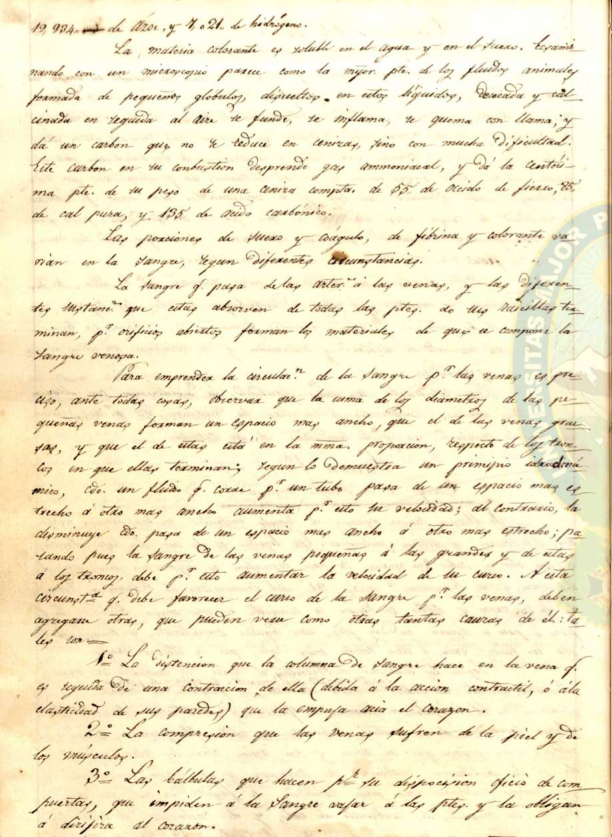 19,934 de Azoe, y 7, o 21. de hidrógeno.
La materia colorante es soluble en el agua y en el suero. Exami-
nando con un microscopio parece como la myor. pte. de los fluidos animales
formada de pequeños globulos, disueltos en estos líquidos, desecada y cal
cinada en seguida al aire se funde, se inflama, se quema con llama, y
dá un carbon que no se reduce en cenizas, sino con mucha dificultad.
Este carbon en su conbustion desprende gas ammoniacal, y dá la centési
ma pte. de su peso de una ceniza compta. de 55 de oxido de fierro, 85
de cal pura, y 135 de acido carbónico.
Las porciones de suero y coágulo, de fibrina y colorante va
rian en la sangre, segun diferentes circunstancias.
La sangre q. pasa de las arters. á las venas, y las diferen
tes sustancs. que estas absorven de todas las ptes. do sus raicillas ter
minan, pr. orificios abiertos forman los materiales de que se compone la
sangre venosa.
Para emprender la circularn. de la sangre pr. las venas es pre
ciso, ante todas cosas, observar que la suma de los diametros de las pe
queñas venas forman un espacio mas ancho, que el de las venas grue
sas, y que el de estas está en la mma. proporcion, respecto de los tron
cos en que ellas terminan; segun lo demuestra un principio idrodiná
mico, cdo. un fluido q. corre pr. un tubo pasa de un espacio mas es
trecho á otro mas ancho aumenta pr. esto su velocidad; al contrario, la
disminuye cdo. pasa de un espacio mas ancho á otro mas estrecho; pa
sando pues la sangre de las venas pequeñas á las grandes y de estas
á los troncos, debe pr. esto aumentar la velocidad de su curso. A esta
circunsta. q. debe favorecer el curso de la sangre pr. las venas, deben
agregarse otras, que pueden verse como otras tantas causas de él: ta
les son=
1º La distencion que la columna de sangre hace en la vena q.
es seguida de una contraccion de ella (debida á la accion contractil, ó á la
elasticidad de sus paredes) que la empuja acia el corazon.
2º La compresion que las venas sufren de la piel y de
los músculos.
3º Las bálbulas que hacen pr. su disposicision oficio de com
puertas, que impiden á la sangre vajar á las ptes. y la obligan
á dirijirse al corazon.